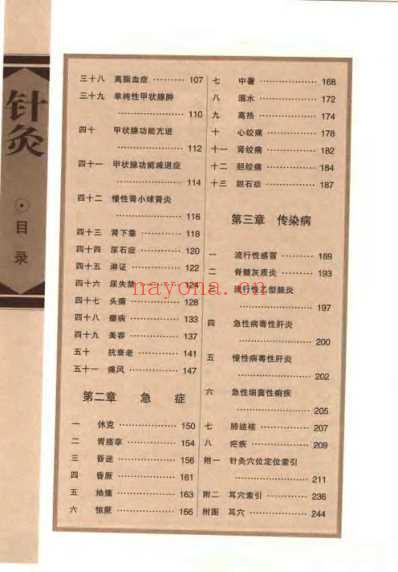 针灸
目录
三十八 高脂血症 107
三十九 单纯性甲状腺肿
110
四十 甲状腺功能亢进
112
四十一 甲状腺功能减退症
114
四十二 慢性肾小球肾炎
116
四十三 肾下垂 118
四十四 尿石症 120
四十五 淋证 122
四十六 尿失禁 124
四十七 头痛 128
四十八 癫病 133
四十九 美容 137
五十 抗衰老 141
五十一 痛风 147
第二章 急症
一 休克 150
二 胃痉挛 154
三 昏迷 156
四 昏厥 161
五 抽搐 163
六 惊厥 166
七 中暑 168
八 溺水 172
九 高热 174
十 心绞痛 178
十一 肾绞痛 182
十二 胆绞痛 184
十三 胆石症 187
第三章 传染病
一 流行性感冒 189
二 脊髓灰质炎 193
三 流行性乙型脑炎
197
四 急性病毒性肝炎
200
五 慢性病毒性肝炎
202
六 急性细菌性痢疾
205
七 肺结核 207
八 疟疾 209
附一 针灸穴位定位索引
211
附二 耳穴索引 236
附图 耳穴 244
nayona.cn